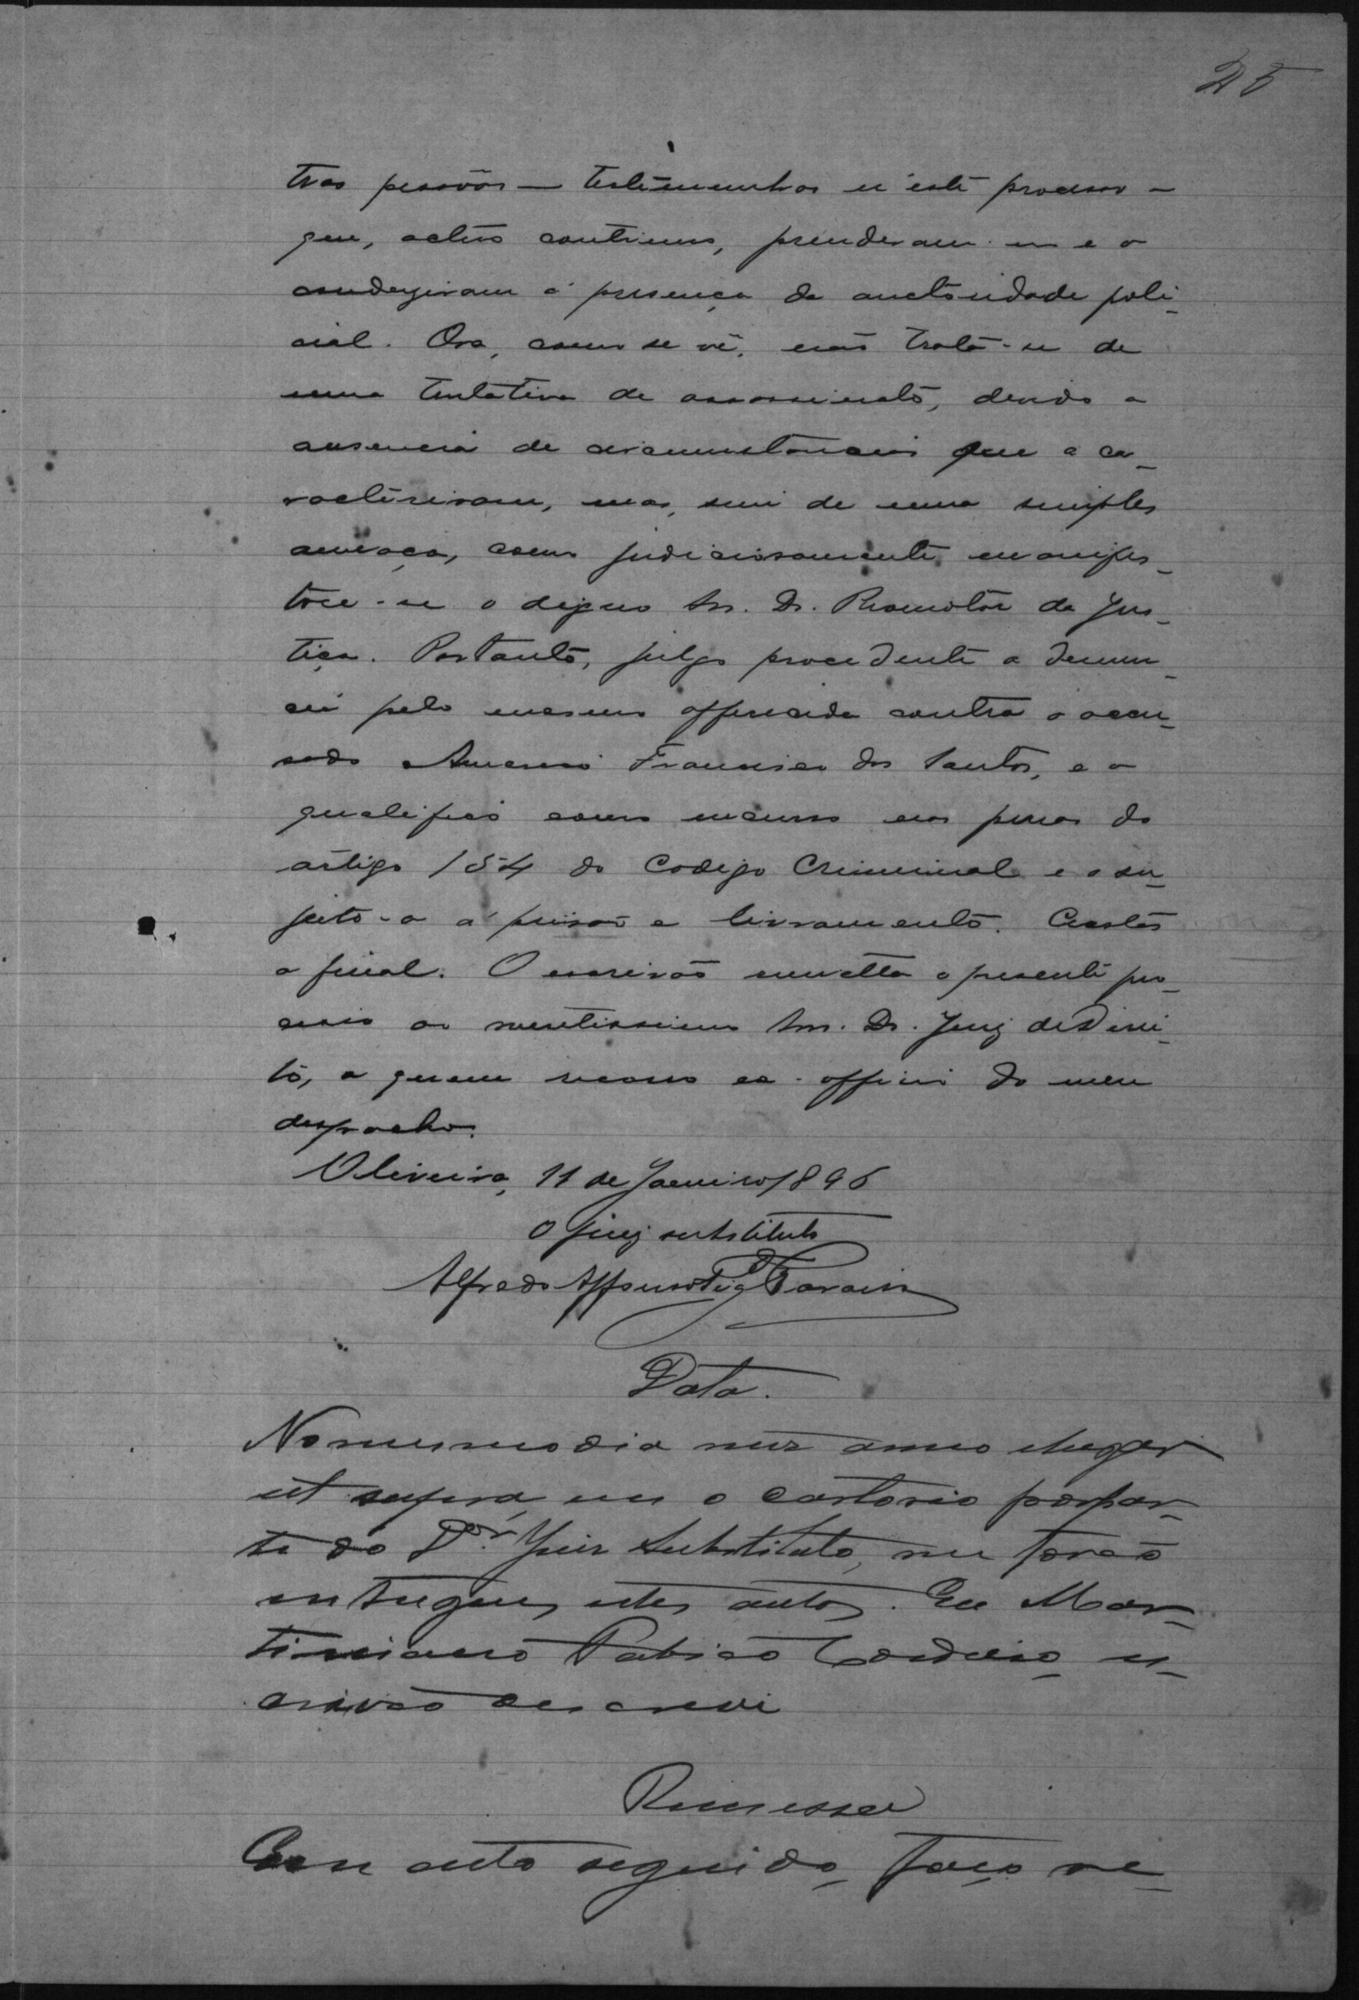 25
tras pessôas — testemunhas n'este processo —
que, actos continuos, prenderam-n-e o
conduziram á presença da auctoridade poli-
cial. Ora, como se vê, não trata-se de
uma tentativa de assassinato, devido a
ausencia de circumstancias que a ca-
racterisam, mas, sim de uma simples
ameaça, como judiciosamente manifes-
tou-se o digno Snr. Dr. Promotor da Jus-
tiça. Portanto, julgo procedente a denun-
cia pelo mesmo offerecida contra o accu-
sado Francisco dos Santos, e o
qualifico como incurso nas penas do
artigo 184 do Codigo Criminal e o su-
jeito-o á prisão e livramento. Custas
a final. O escrivão remetta o presente pro-
cesso ao meritissimo Snr. Dr. Juiz de Direi-
to, a quem recorro ex-officio do meu
despacho.
Oliveira, 11 de Janeiro 1896
O Juiz substituto
Alfredo Affonso
Data.
No mesmo dia mez anno e lugar
ut supra, em o cartorio por par-
te do Dor. Juiz Substituto, me forão
entregues estes autos. Eu Mar-
tiniano Cordeiro, es-
crivão o escrevi
Remessa
Em acto seguido, faço re-